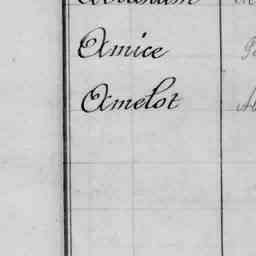 Amice
Amelot